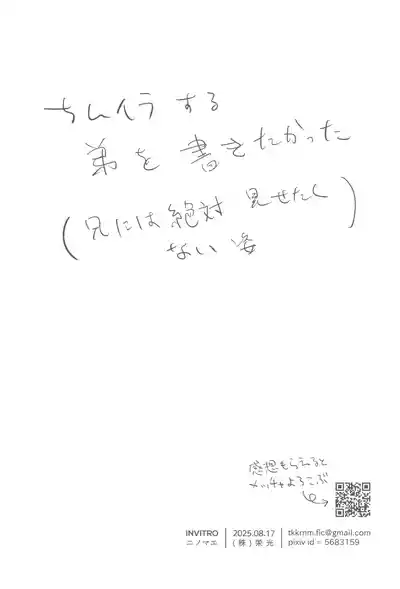 ちんイラする
弟を書きたかった
(兄には絶対見せたく
ない姿)
感想もらえると
メッチャよろこぶ
INVITRO
ニノマエ
2025.08.17
(株)栄光
tkkmm.fic@gmail.com
pixiv id = 5683159